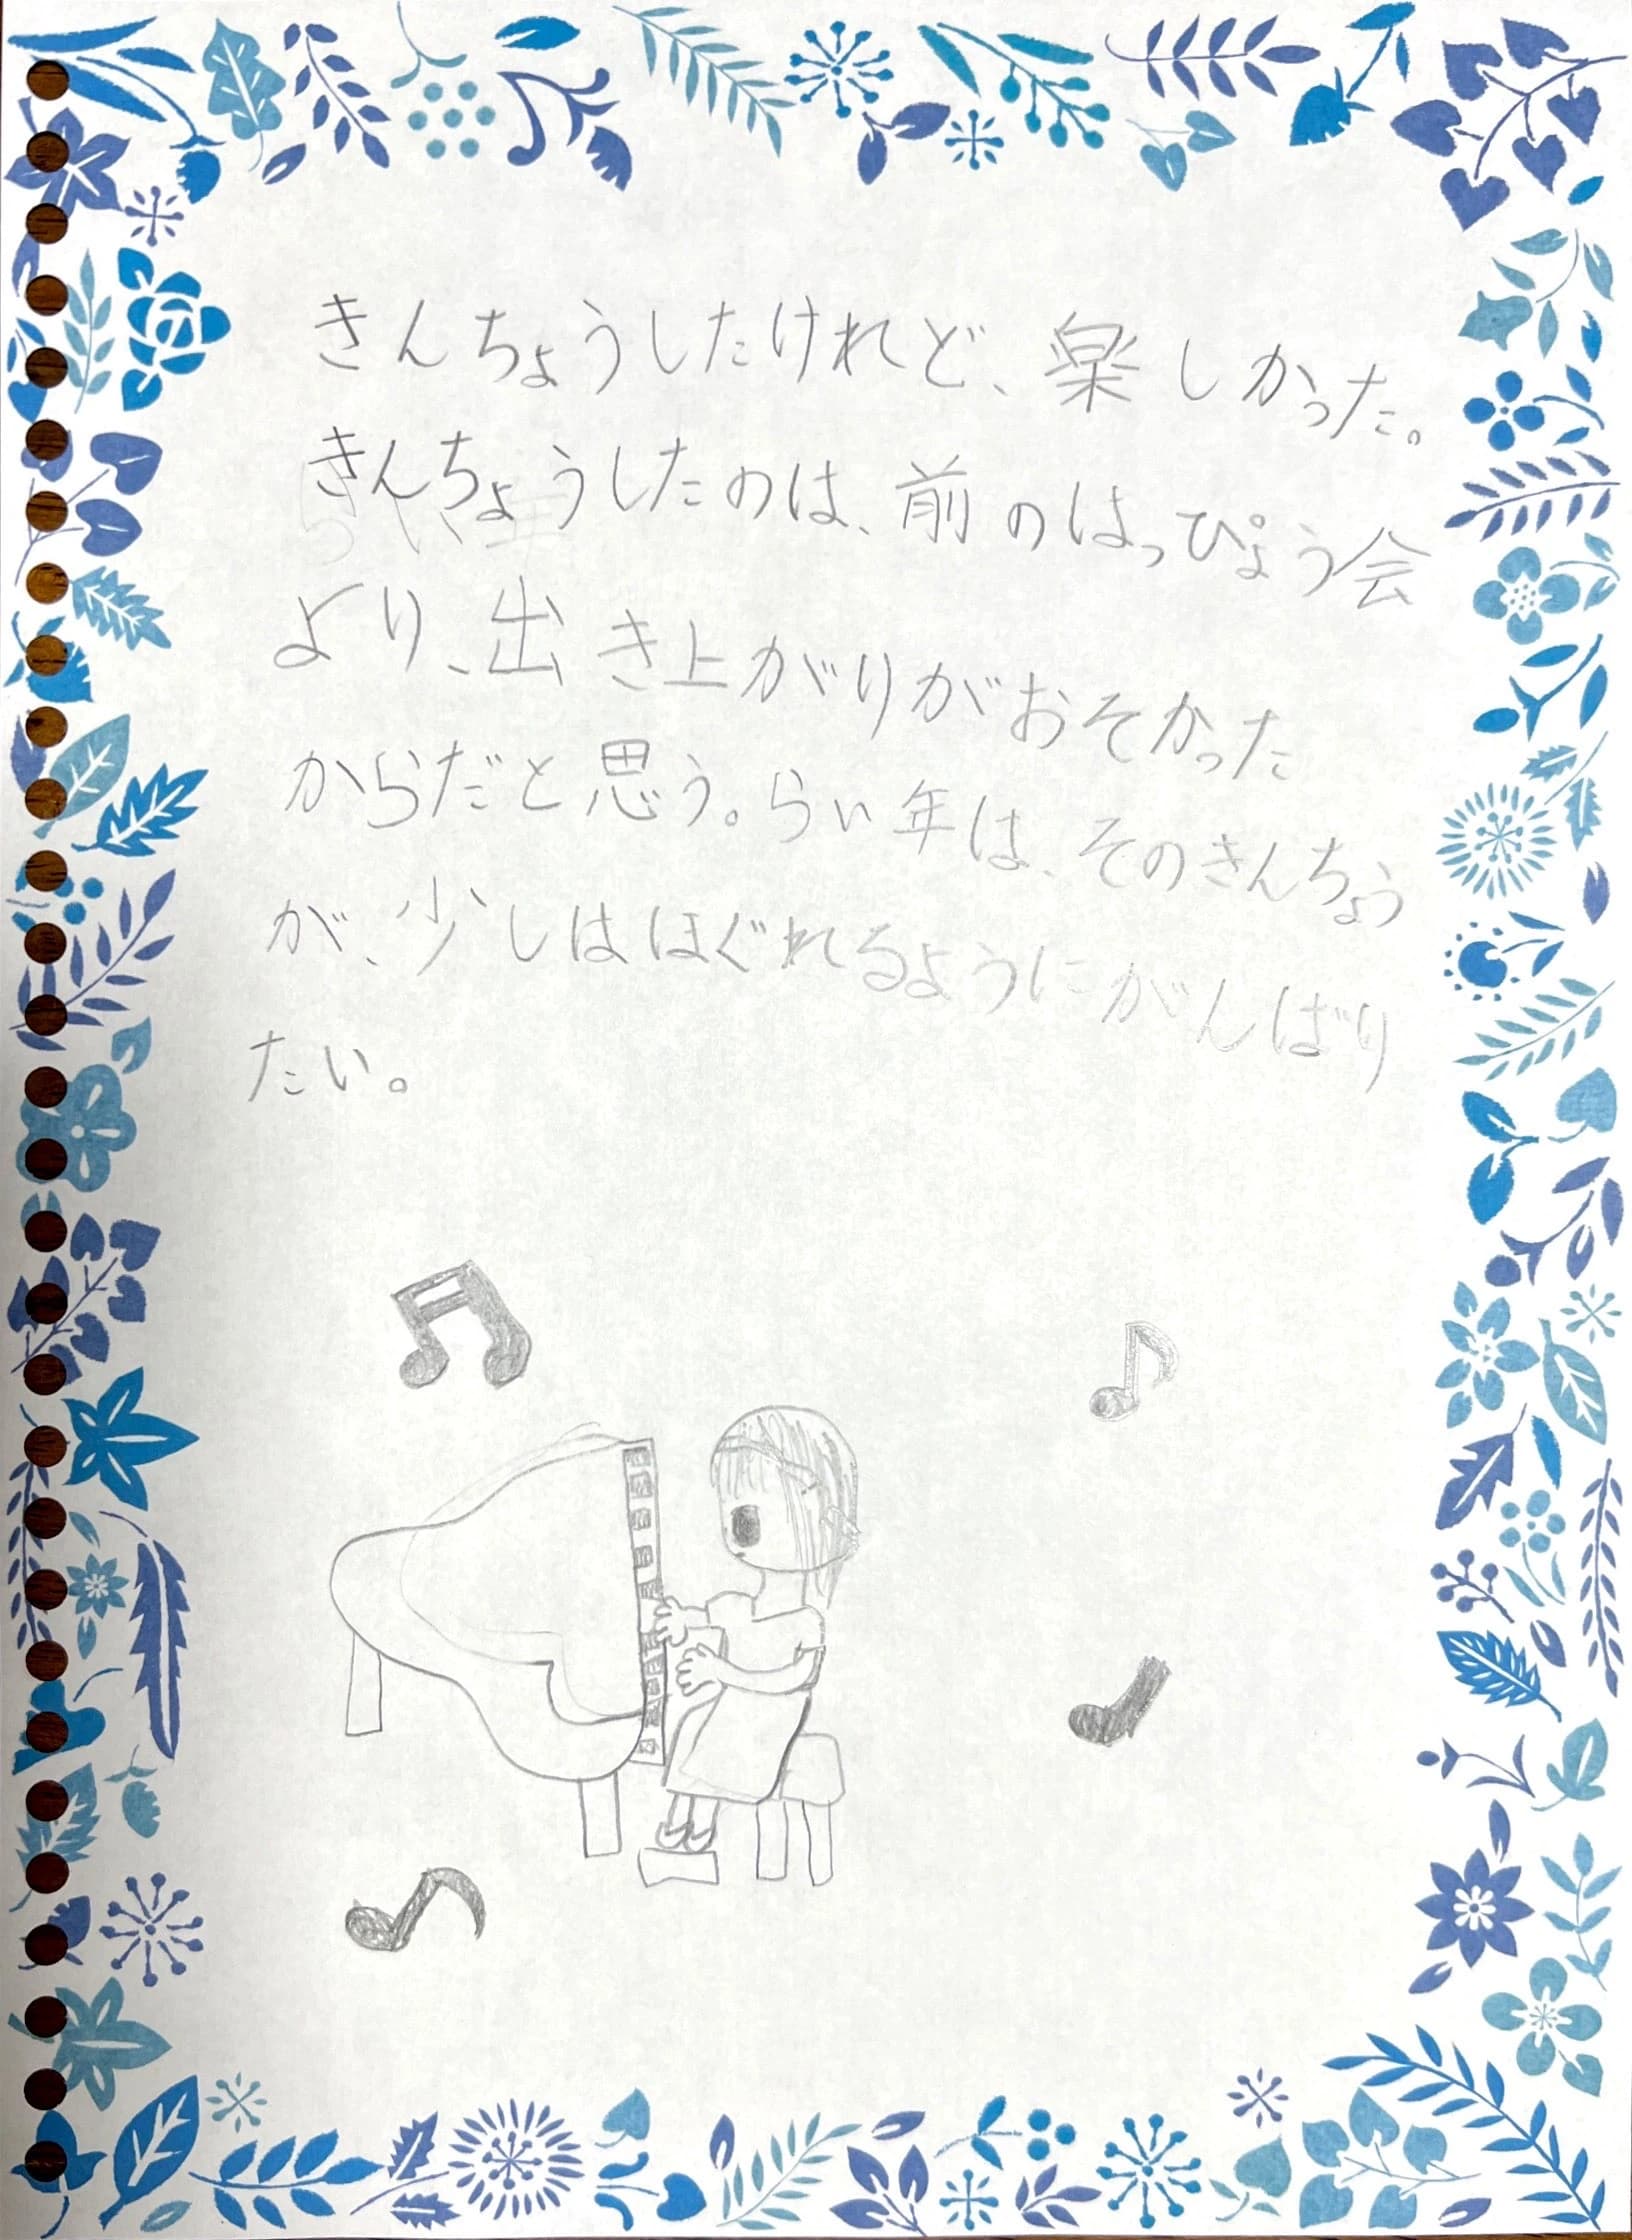 きんちょうしたけれど、楽しかった。
きんちょうしたのは、前のはっぴょう会
より、出き上がりがおそかった
からだと思う。らい年は、そのきんちょう
が、少しはほぐれるようにがんばり
たい。